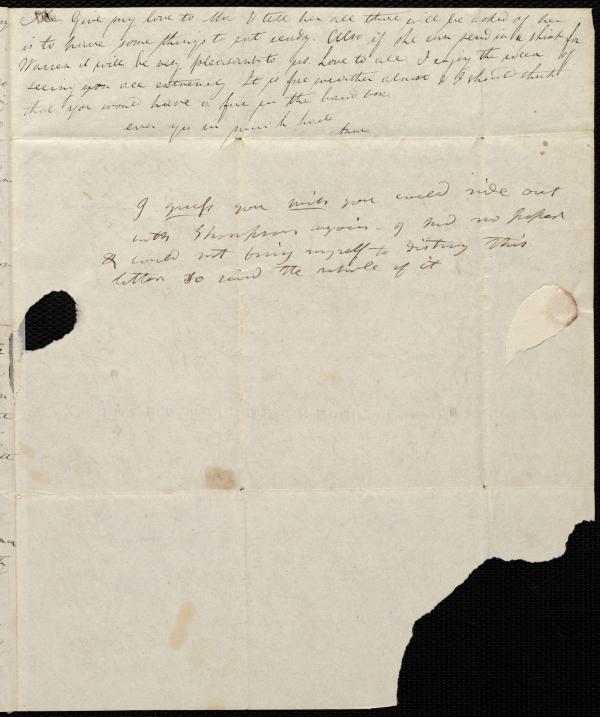 Give my love to Mrs V tell her all there will be asked of her
is to have some things to eat ready. Also if she can send in a shirt for
Warren it will be very pleasant to yrs. Love to all. I enjoy the idea of
seeing you all extremely It is fire weather almost & I should think
that you would have a fire in the band box
ever yrs in much haste
Anne
I guess you wish you could ride out
with Thompson again - I had no paper
& could not bring myself to destroy this
letter so send the whole of it